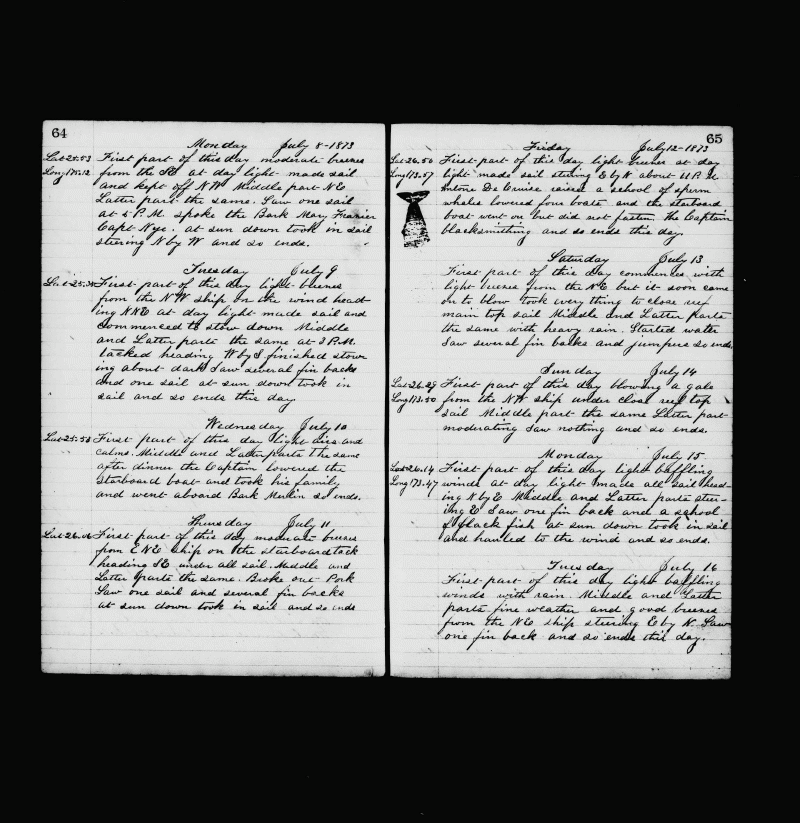 64
Monday July 8-1873
Lat 25.53 First part of this day moderate breezes
Long 171.12 from the SE at day light made sail
and kept off NW Middle part NE
Latter part the same. Saw one sail
at 5 P.M. spoke the Bark Mary Frazier
Capt Nye. at sun down took in sail
steering N by W and so ends.
Tuesday July 9
First part of this day light breezes
from the NW ship on the wind head-
ing NNE at day light made sail and
commenced to stow down Middle
and Latter parts the same at 3 P.M.
tacked heading W by S. finished stow-
ing about dark Saw several fin backs
and one sail at sun down took in
sail and so ends this day
Wednesday July 10
Lat 25.53 First part of this day light airs and
calms. Middle and Latter parts the same
after dinner the Captain lowered the
starboard boat and took his family
and went aboard Bark Merlin so ends.
Thursday July 11
Lat 26.06 First part of this day moderate breezes
from ENE ship on the starboard tack
heading SE under all sail. Middle and
Latter parts the same. Broke out Pork
Saw one sail and several fin backs
at sun down took in sail and so ends
65
Friday July 12-1873
Lat 26.50 First part of this day light breezes at day
Long 173.57 light made sail steering E by N about 11 P.M
Antone De Cruise raised a school of sperm
whales lowered four boats and the starboard
boat went on but did not fasten. The Captain
blacksmithing and so ends this day.
Saturday July 13
First part of this day commences with
light breezes from the NE but it soon came
on to blow took every thing to close reef
main top sail Middle and Latter parts
the same with heavy rain. Started water
Saw several fin backs and jumpers so ends
Sunday July 14
Lat 26.29 First part of this day blowing a gale
Long 173.50 from the NW ship under close reef top
sail Middle part the same Latter part
moderating Saw nothing and so ends.
Monday July 15
Lat 26.14 First part of this day light baffling
Long 173.47 winds at day light made all sail head-
ing N by E Middle and Latter parts steer-
ing E Saw one fin back and a school
of black fish at sun down took in sail
and hauled to the wind and so ends.
Tuesday July 16
First part of this day light baffling
winds with rain. Middle and Latter
parts fine weather and good breezes
from the NE ship steering E by N. Saw
one fin back and so ends this day.